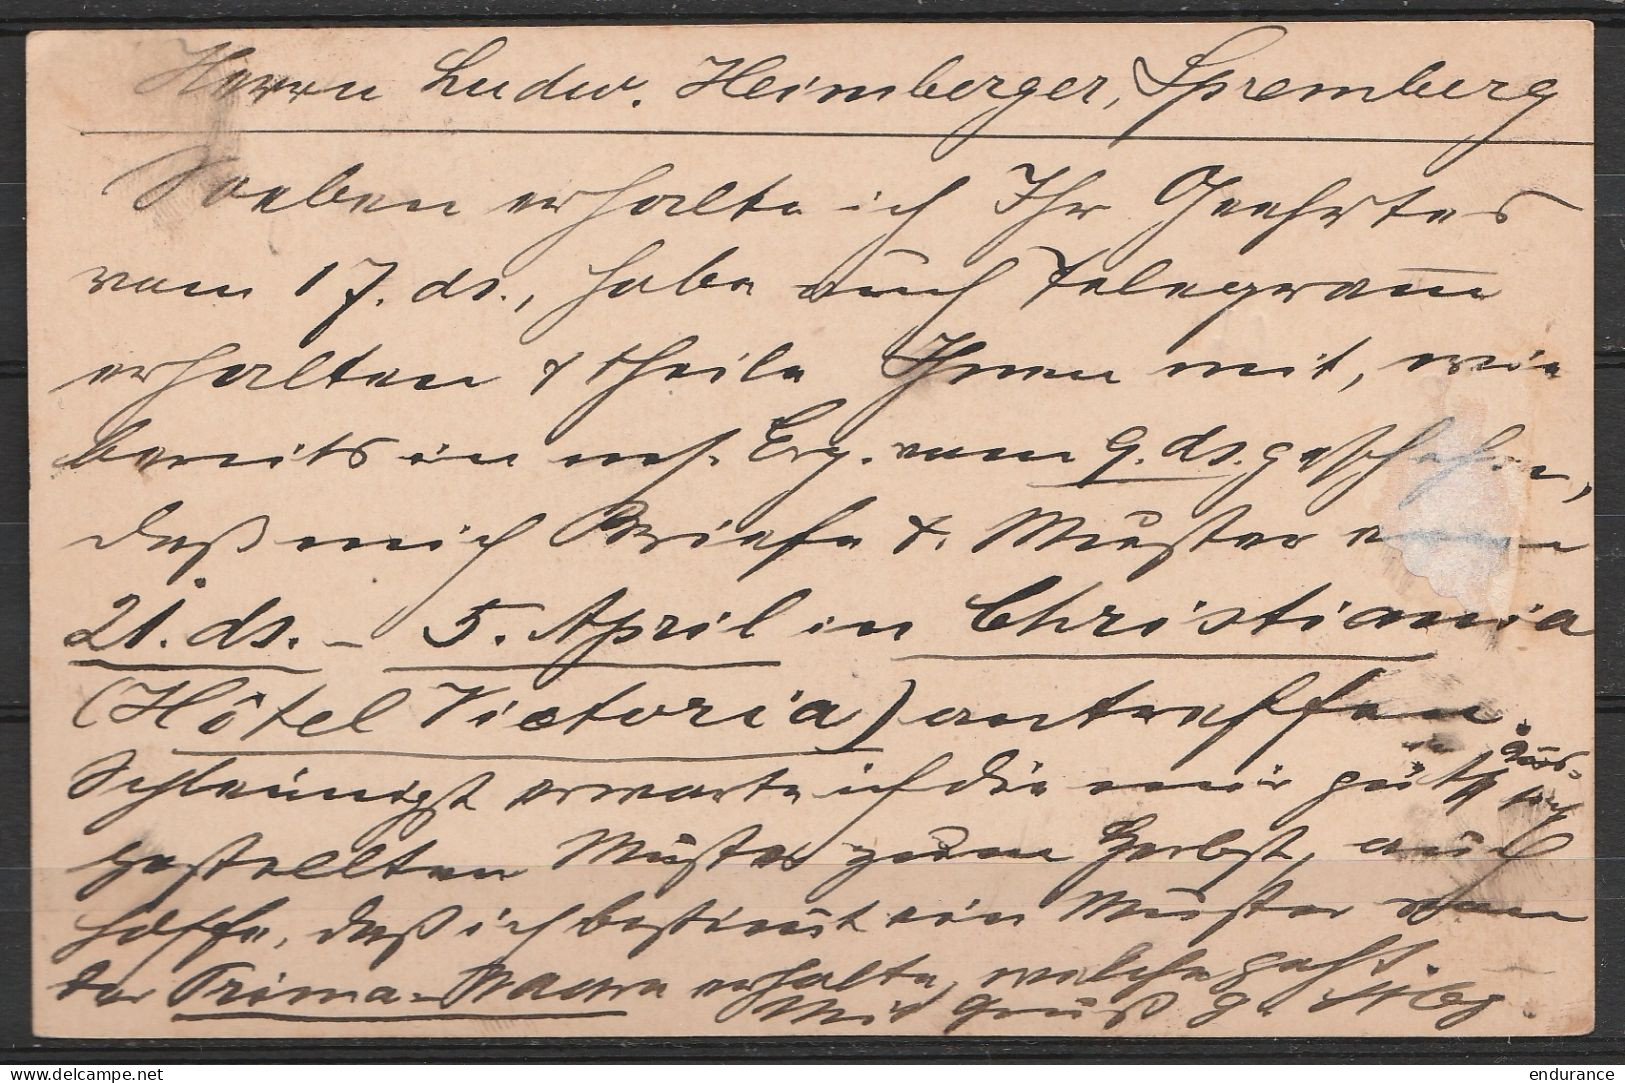 Herrn Ludw. Heimberger, Spremberg
Soeben erhalte ich Ihr Geehrtes
vom 17. ds., habe auch Telegram̅
erhalten & theile Ihnen mit, wie
bereits in m/. Erg. vom 9. ds. geschehen,
daß mich Briefe & Muster vom
21. ds. – 5. April in Christiania
(Hôtel Victoria) antreffen.
Schleunigst erwarte ich die mir gütigst aus-
gestellten Muster zum Herbst, auch
hoffe, daß ich bestimmt ein Muster von
der Prima-Waare erhalte, welche geht.
Mit Gruß
endurance